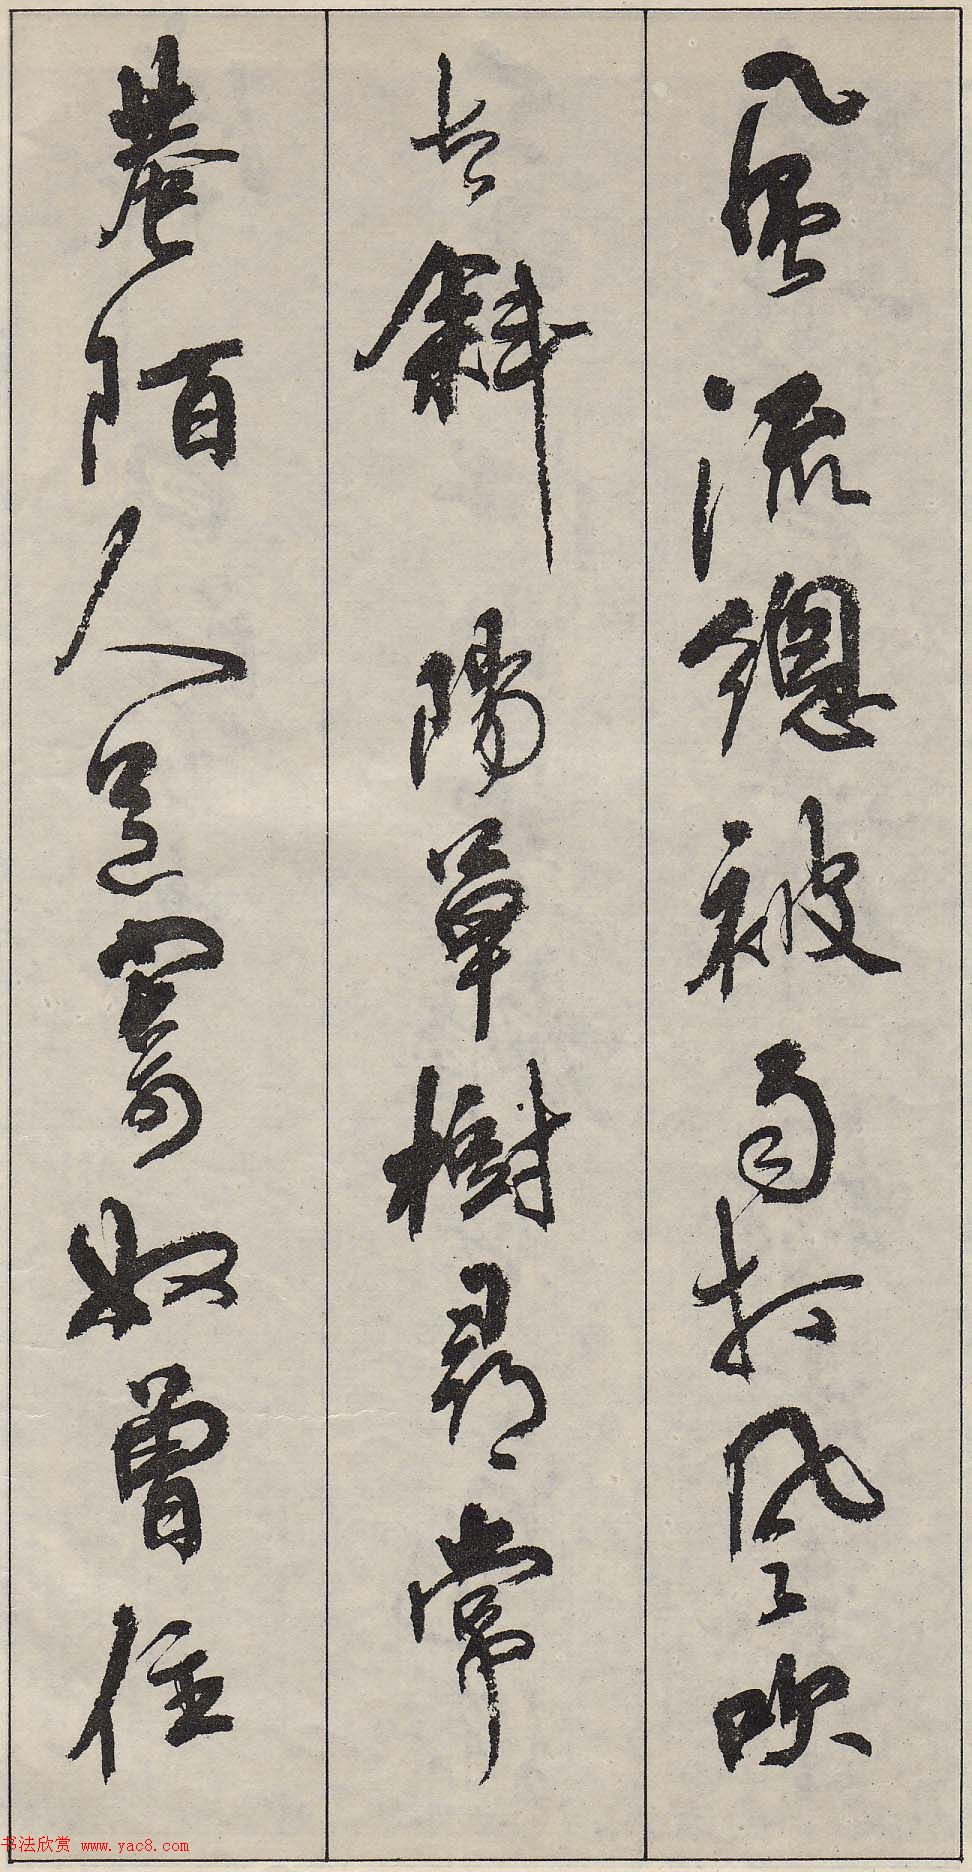 風流總被雨打風吹
去斜陽草樹尋常
巷陌人道寄奴曾住
书法欣赏 www.yac8.com